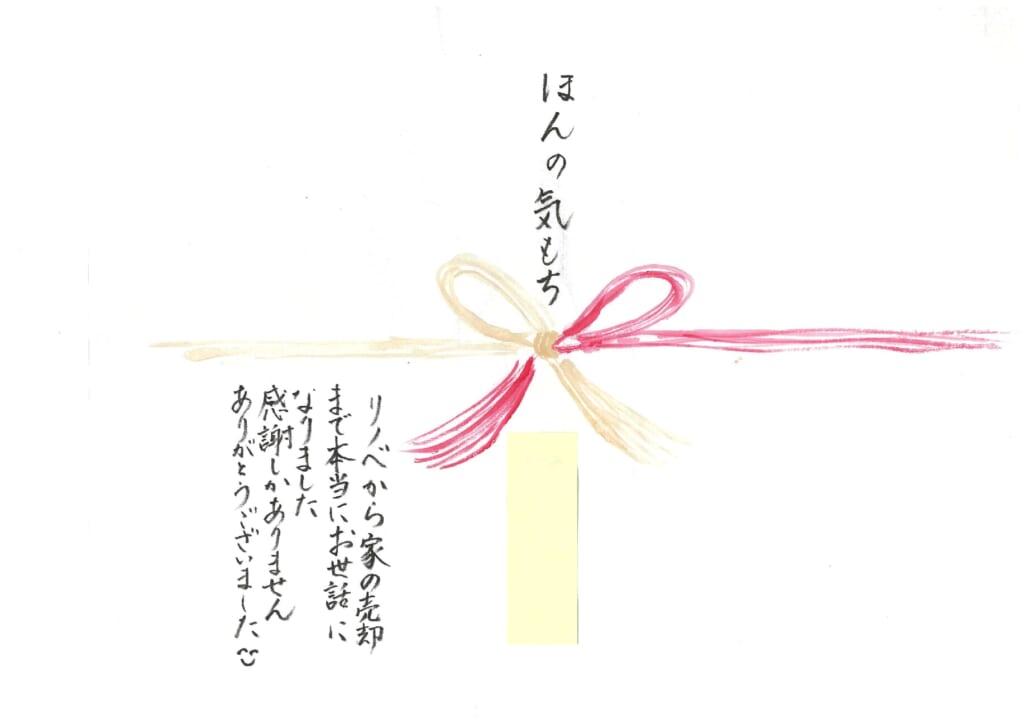 ほんの気もち
リノベから家の売却
まで本当にお世話に
なりました
感謝しかありません
ありがとうございました